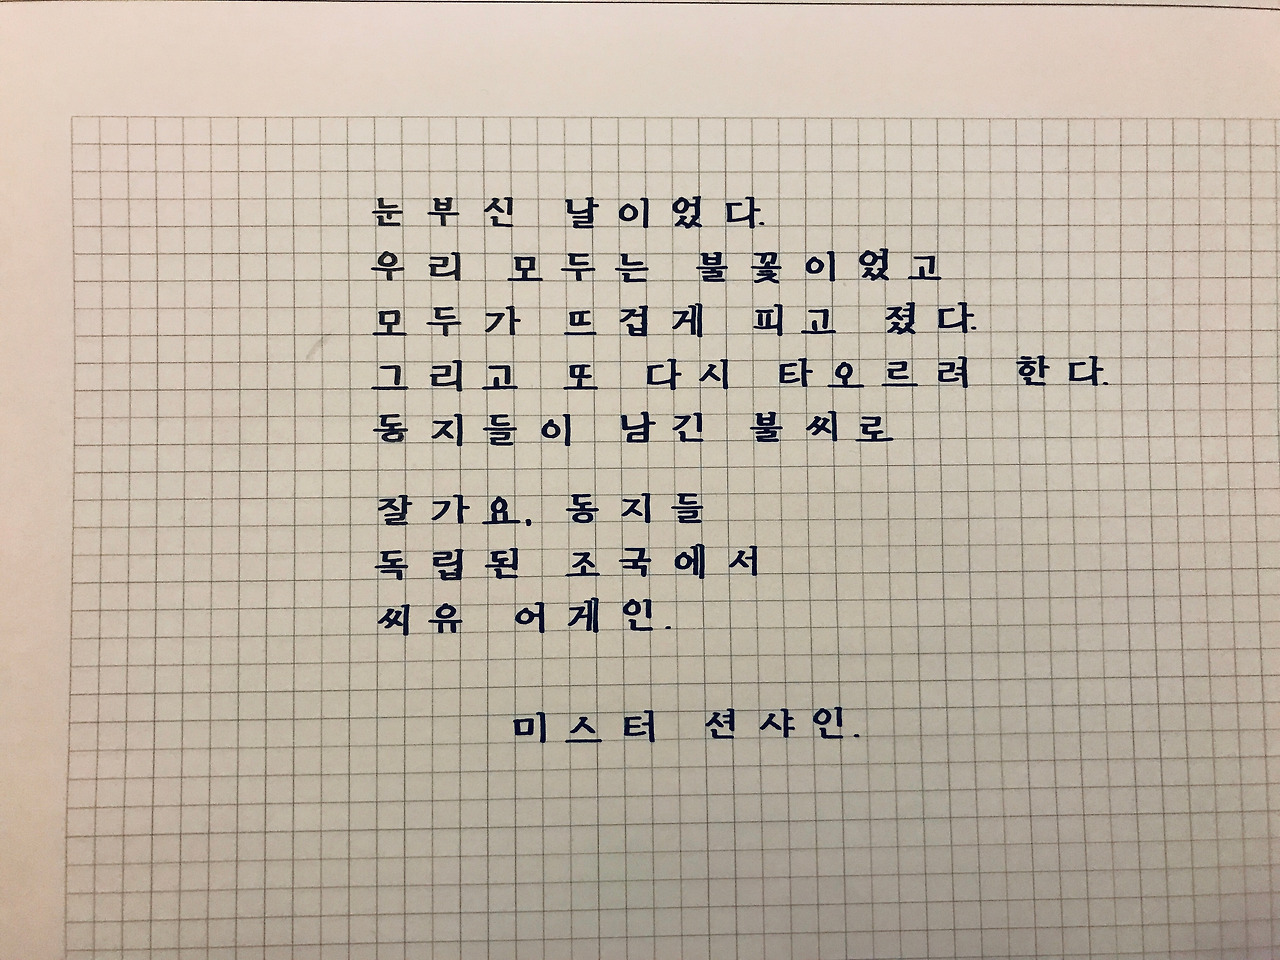 눈부신 날이었다.
우리 모두는 불꽃이었고
모두가 뜨겁게 피고 졌다.
그리고 또 다시 타오르려 한다.
동지들이 남긴 불씨로
잘가요, 동지들
독립된 조국에서
씨유 어게인.
미스터 션샤인.